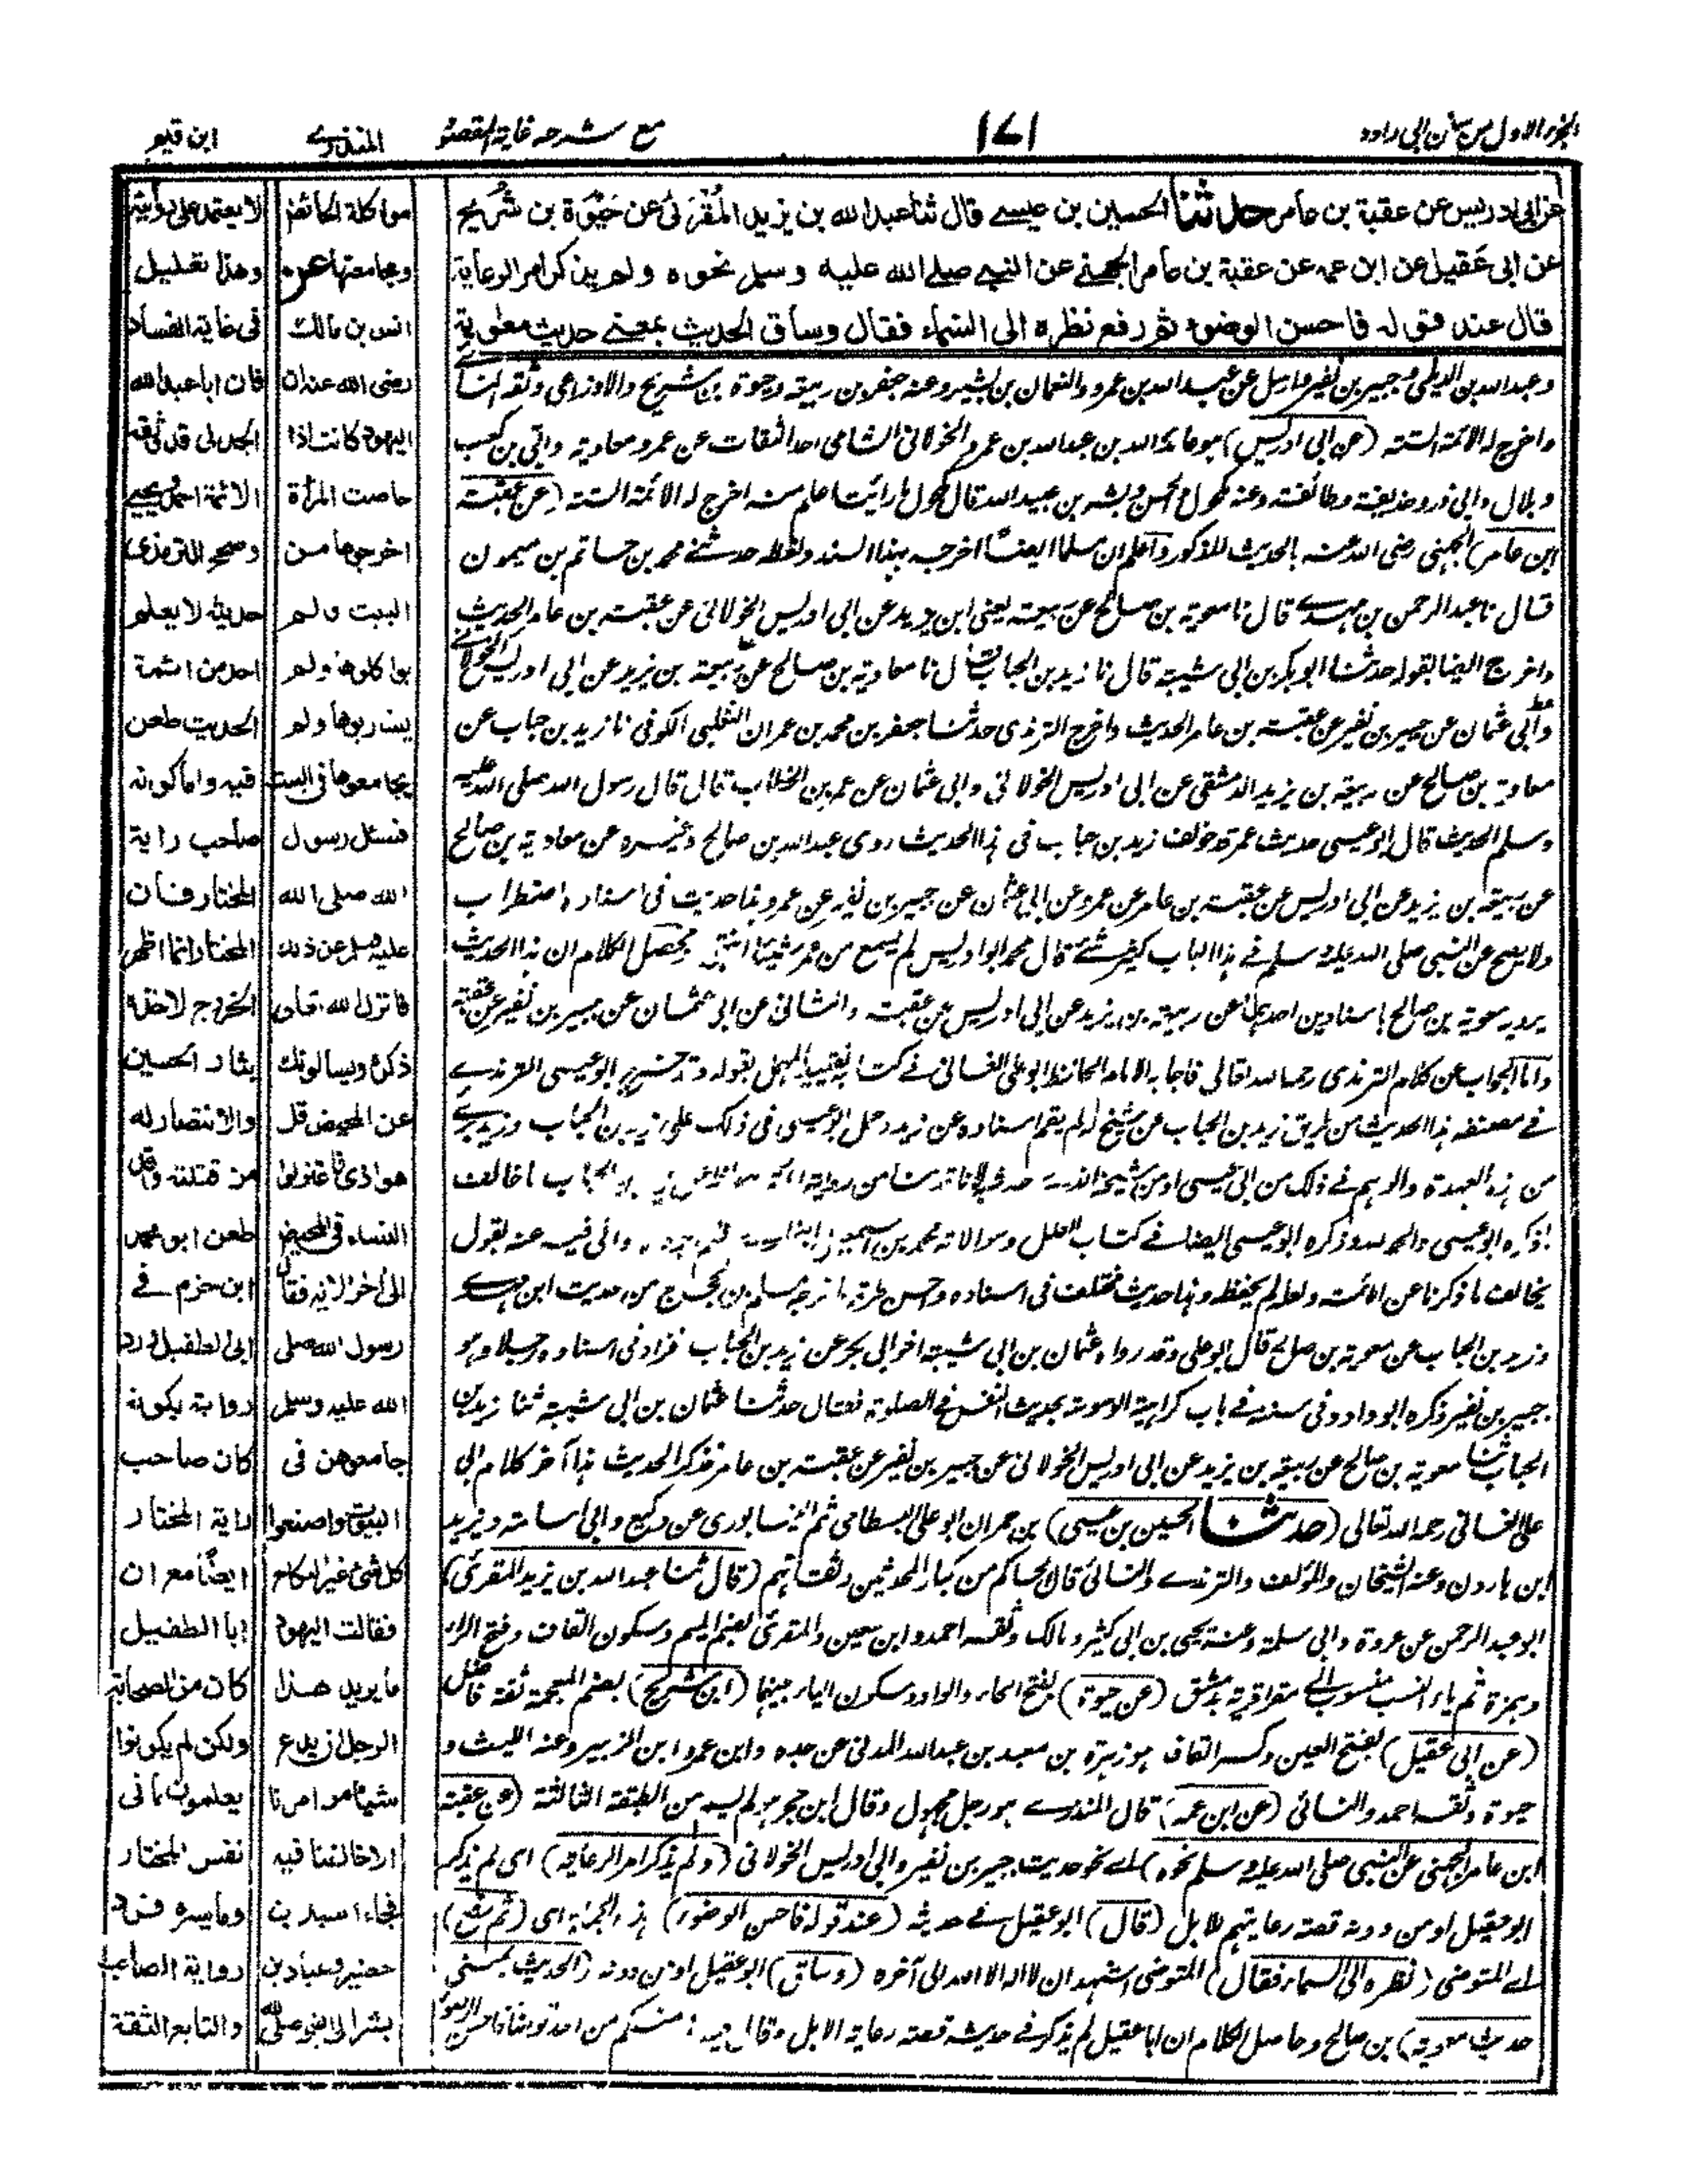 الجزء الاول من سنن ابی داود
١٧١
مع شرحه غاية المقصود
المنذري
ابن قيم
عن ابی ادريس عن عقبة بن عامر حدثنا الحسين بن عيسے قال ثنا عبد الله بن يزيد المُقْرِئ عن حَيْوَة بن شُرَيح
عن ابی عَقيل عن ابن عمه عن عقبة بن عامر الجهني عن النبي صلے الله عليه وسلم نحوه ولم يذكر امر الرعاية
قال عند قوله فاحسن الوضوء ثم رفع نظره الى السماء فقال وساق الحديث بمعنے حديث معٰوية
وعبد الله بن الديلمی وجبير بن نفير وارسل عن عبد الله بن عمرو والنعمان بن بشير وعنه جعفر بن ربيعة وحيوة بن شريح والاوزاعی وثقه النسائے
واخرج له الائمة الستة (عن ابی ادريس) هو عائذ الله بن عبد الله بن عمرو الخولانی الشامی احد الثقات عن عمر ومعاوية وابی بن كعب
وبلال وابی ذر وحذيفة وطائفة وعنه مكحول والحسن وبشر بن عبيد الله قال مكحول ما رأيت اعلم منه اخرج له الائمة الستة (عن عقبة
ابن عامر) الجهنی رضی الله عنه بالحديث المذكور واعلم ان مسلما ايضًا اخرجه بهذا السند ولفظه حدثنے محمد بن حاتم بن ميمون
قال نا عبد الرحمن بن مهدے قال نا معوية بن صالح عن ربيعة يعنی ابن يزيد عن ابی ادريس الخولانی عن عقبة بن عامر الحديث
واخرج ايضا بقوله حدثنا ابو بكر بن ابی شيبة قال نا زيد بن الحباب قال نا معاوية بن صالح عن ربيعة بن يزيد عن ابی ادريس الخولانے
وابی عثمان عن جبير بن نفير عن عقبة بن عامر الحديث واخرج الترمذی حدثنا جعفر بن محمد بن عمران الثعلبی الكوفی نا زيد بن حباب عن
معاوية بن صالح عن ربيعة بن يزيد الدمشقی عن ابی ادريس الخولانی وابی عثمان عن عمر بن الخطاب قال قال رسول الله صلی الله عليه
وسلم الحديث قال ابو عيسی حديث عمر قد خولف زيد بن حباب فی هذا الحديث روی عبد الله بن صالح وغيره عن معاوية بن صالح
عن ربيعة بن يزيد عن ابی ادريس عن عقبة بن عامر عن عمر وعن ابی عثمان عن جبير بن نفير عن عمر وهذا حديث فی اسناده اضطراب
ولا يصح عن النبی صلی الله عليه وسلم فے هذا الباب كثير شئے قال محمد ابو ادريس لم يسمع من عمر شيئا انتهی محصل الكلام ان هذا الحديث
يرويه معوية بن صالح باسنادين احدهما عن ربيعة بن يزيد عن ابی ادريس عن عقبة والثانی عن ابی عثمان عن جبير بن نفير عن عقبة
واما الجواب عن كلام الترمذی رحمه الله تعالی فاجاب الامام الحافظ ابو علی الغسانی فے كتابه تقييد المهمل بقوله وقد خرج ابو عيسی الترمذے
فے مصنفه هذا الحديث من طريق زيد بن الحباب عن شيخ له لم يقم اسناده عن زيد وحمل ابو عيسی فی ذلك علی زيد بن الحباب وزيد برئ
من هذه العهدة والوهم فے ذلك من ابی عيسی او من شيخه الذے حدثه به لانا قدمنا من رواية ائمة حفاظ عن زيد بن الحباب ما خالف
ما ذكره ابو عيسی والحمد لله وذكره ابو عيسی ايضا فے كتاب العلل وسوالاته محمد بن اسمعيل البخارے فلم يجوده واتی فيه عنه بقول
يخالف ما ذكرنا عن الائمة ولعله لم يحفظه وهذا حديث مختلف فی اسناده واحسن طرقه ما خرجه مسلم بن الحجاج من حديث ابن مهدے
وزيد بن الحباب عن معوية بن صالح قال ابو علی وقد رواه عثمان بن ابی شيبة اخو ابی بكر عن زيد بن الحباب فزاد فی اسناده رجلا وهو
جبير بن نفير ذكره ابو داود فی سننه فے باب كراهية الوسوسة بحديث النفس فے الصلوة فقال حدثنا عثمان بن ابی شيبة ثنا زيد بن
الحباب ثنا معوية بن صالح عن ربيعة بن يزيد عن ابی ادريس الخولانی عن جبير بن نفير عن عقبة بن عامر فذكر الحديث هذا آخر كلام ابی
علی الغسانی رحمه الله تعالی (حدثنا الحسين بن عيسی) بن حمران ابو علی البسطامی ثم النيسابوری عن وكيع وابی اسامة ويزيد
ابن هارون وعنه الشيخان والمؤلف والترمذے والنسائی قال الحاكم من كبار المحدثين وثقاتهم (قال ثنا عبد الله بن يزيد المقرئ)
ابو عبد الرحمن عن عروة وابی سلمة وعنه يحيی بن ابی كثير ومالك وثقه احمد وابن معين والمقرئ بضم الميم وسكون القاف وفتح الراء
وهمزة ثم ياء النسب منسوب الے مقرا قرية بدمشق (عن حيوة) بفتح الحاء والواو وسكون الياء بينهما (ابن شريح) بضم المعجمة ثقة فاضل
(عن ابی عقيل) بفتح العين وكسر القاف هو زهرة بن معبد بن عبد الله المدنی عن جده وابن عمر وابن الزبير وعنه الليث و
حيوة وثقه احمد والنسائی (عن ابن عمه) قال المنذرے هو رجل مجهول وقال ابن حجر هو لم يسم من الطبقة الثالثة (عن عقبة
ابن عامر الجهنی عن النبی صلی الله عليه وسلم نحوه) اے نحو حديث جبير بن نفير وابی ادريس الخولانی (ولم يذكر امر الرعاية) ای لم يذكر
ابو عقيل او من دونه قصة رعايتهم للابل (قال) ابو عقيل فے حديثه (عند قوله فاحسن الوضوء) هذه الجملة ای (ثم رفع)
اے المتوضی (نظره الی السماء فقال) المتوضی اشهد ان لا اله الا الله الی آخره (وساق) ابو عقيل او من دونه (الحديث بمعنی
حديث معوية) بن صالح وحاصل الكلام ان ابا عقيل لم يذكر فے حديثه قصة رعاية الابل وقال فيه ما منكم من احد توضأ فاحسن الوضوء
مواكلة الحائض
ومجامعتها عن
انس بن مالك
رضی الله عنه ان
اليهود كانت اذا
حاضت المرأة
اخرجوها من
البيت ولم
يواكلوها ولم
يشاربوها ولم
يجامعوها فی البيت
فسئل رسول
الله صلی الله
عليه وسلم عن ذلك
فانزل الله تعالی
ذكره ويسالونك
عن المحيض قل
هو اذی فاعتزلوا
النساء فی المحيض
الی آخر الاية فقال
رسول الله صلی
الله عليه وسلم
جامعوهن فی
البيوت واصنعوا
كل شئ غير النكاح
فقالت اليهود
ما يريد هذا
الرجل ان يدع
شيئا من امرنا
الا خالفنا فيه
فجاء اسيد بن
حضير وعباد بن
بشر الی النبی صلی الله
لا يعتمد علی روايته
وهذا تعليل
فی غاية الفساد
فان ابا عبد الله
الجدلی قد وثقه
الائمة احمد ويحيے
وصحح الترمذی
حديثه لا يعلم
احد من ائمة
الحديث طعن
فيه واما كونه
صاحب راية
المختار فان
المختار انما اظهر
الخروج لاخذه
بثار الحسين
والانتصار له
من قتلته وقد
طعن ابو محمد
ابن حزم فے
ابی الطفيل ورد
روايته بكونه
كان صاحب
راية المختار
ايضًا مع ان
ابا الطفيل
كان من الصحابة
ولكن لم يكونوا
يعلمون ما فی
نفس المختار
وما يسره فرد
رواية الصاحب
والتابع الثقة